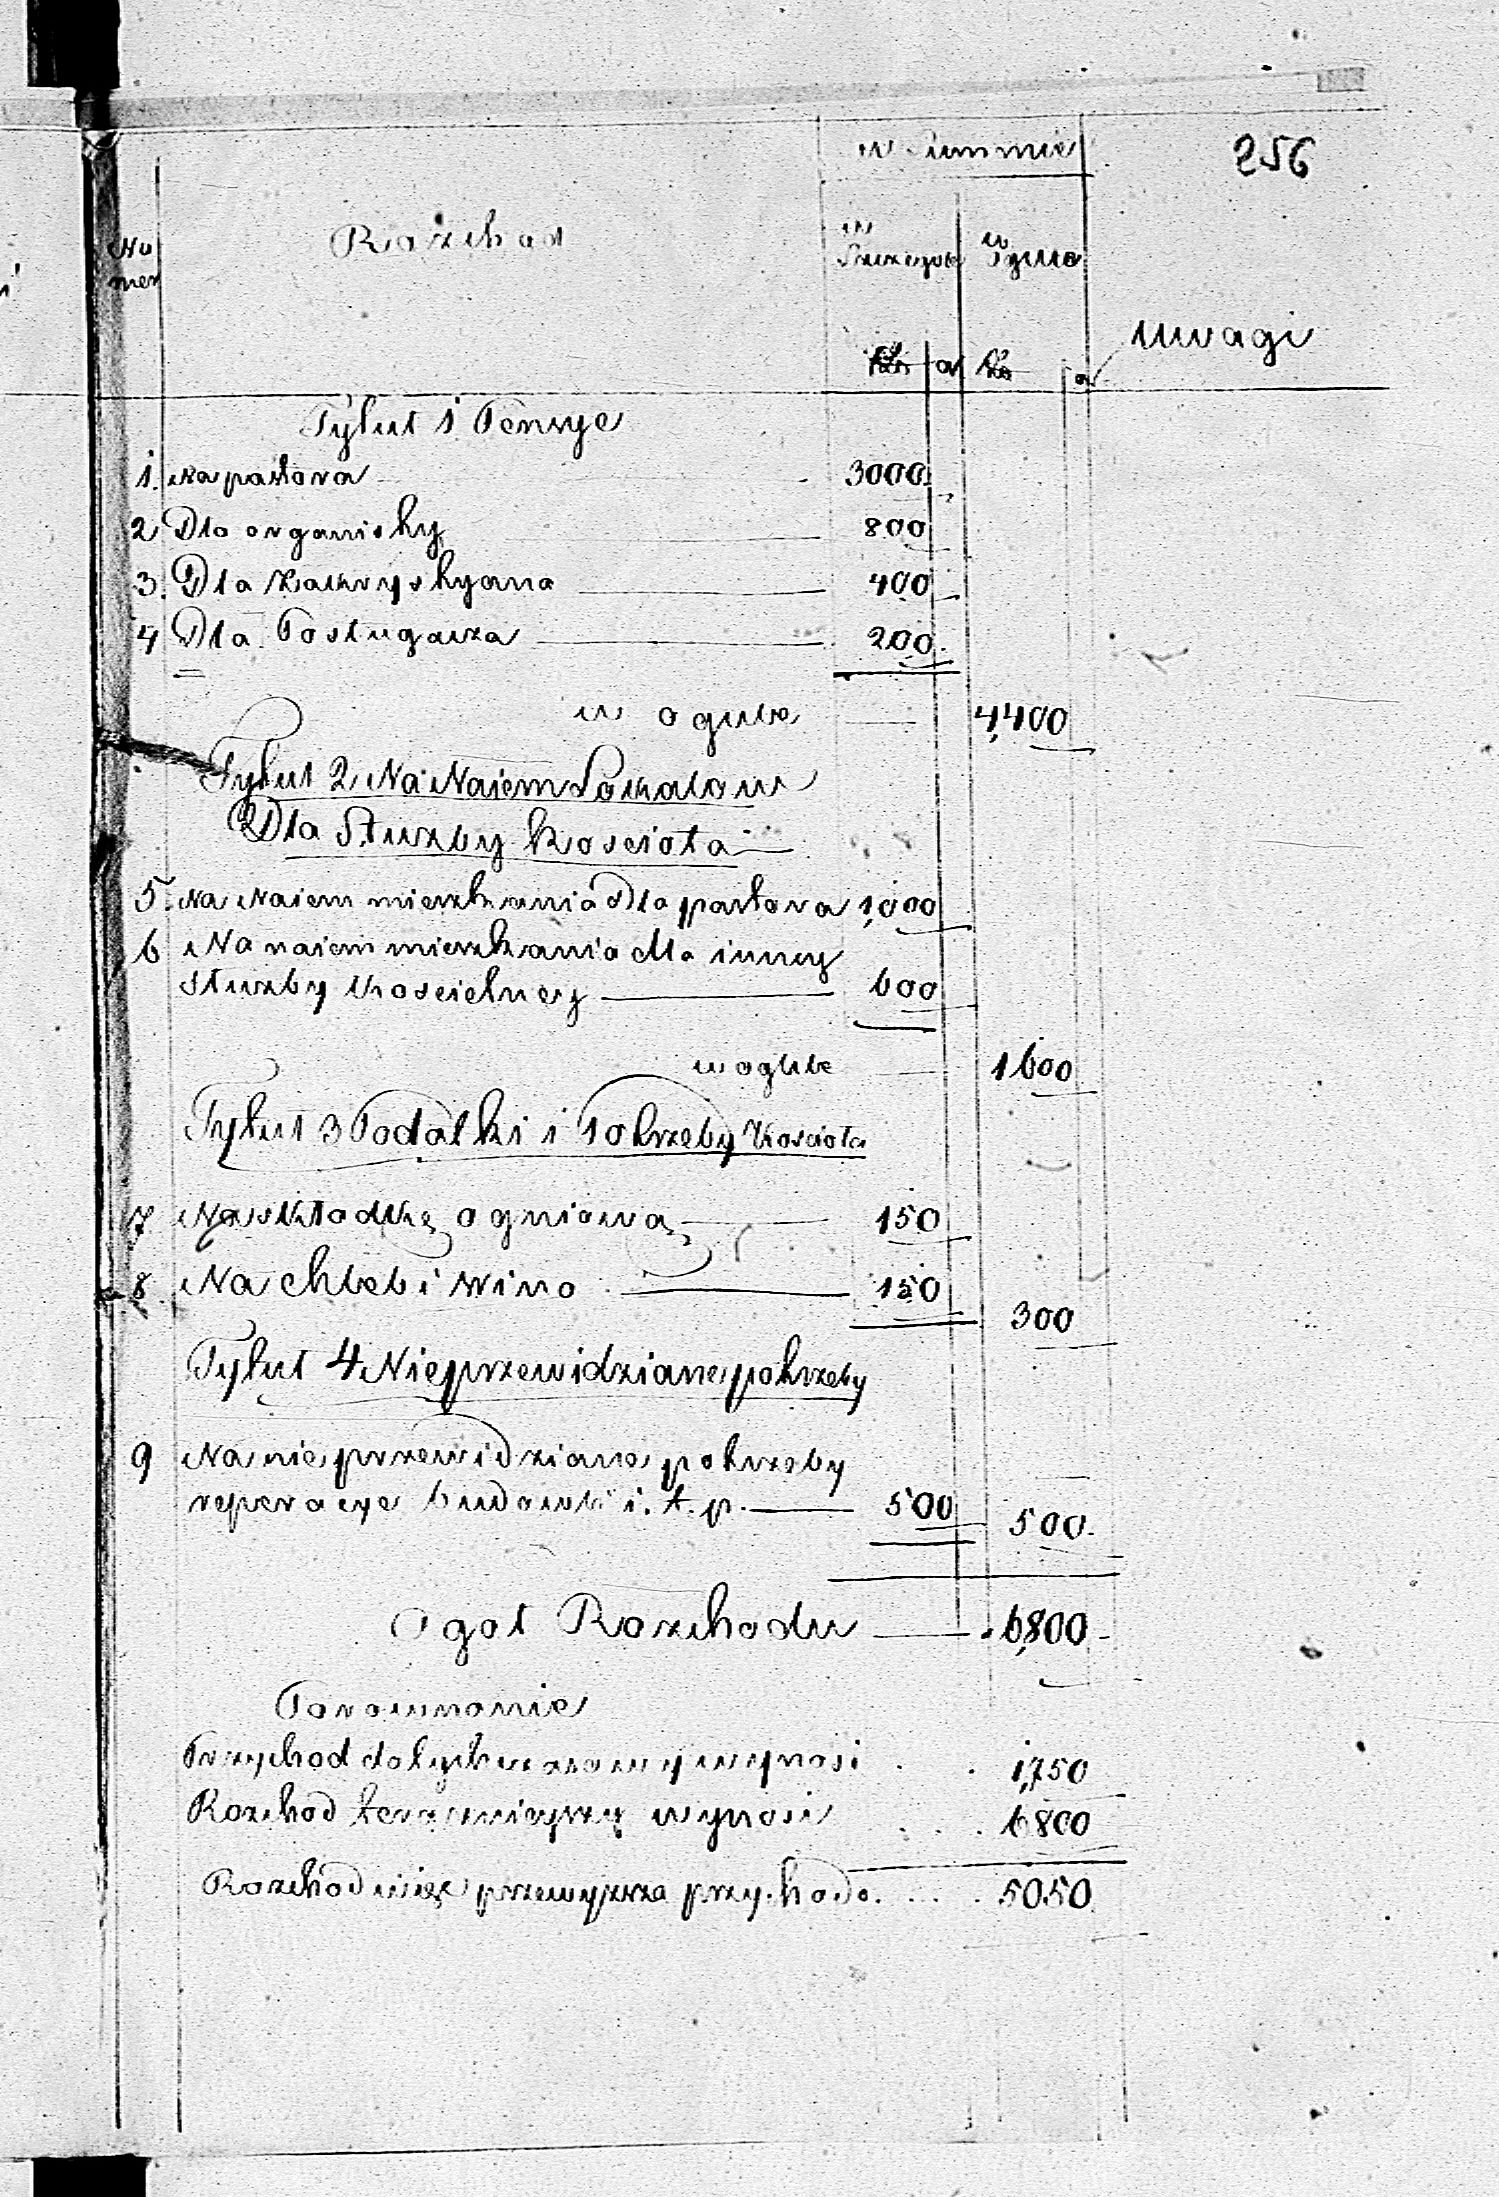 w Summie
256
Nu
mer
Rozchod
w
Szczegole
w
Ogule
Uwagi
Tytut 1 Pensye
1. na pastora 3000
2 Dla organisty 800
3. Dla Zakrystyana 400
4 Dla Posługacza 200
w ogule 4,400
Tytuł 2 Na Naiem Lokalow
Dla Służby Kościoła
5. Na Naiem mieszkania Dla pastora 1,000
6 Na naiem mieszkania dla inney
służby Kościelney 600
w ogule 1600
Tytuł 3 Podatki i Potrzeby Kościoła
7 Na składkę ogniową 150
8 Na chleb i wino 150
300
Tytuł 4 Nieprzewidziane potrzeby
9 Na nieprzewidziane potrzeby
reperacye budowli i. t. p. 500 500
Ogoł Rozchodu 6,800
Porownanie
Przychod dotychczasowy wynosi 1,750
Rozchod teraznieyszy wynosi 6800
Rozchod więc przewyższa przychod 5050